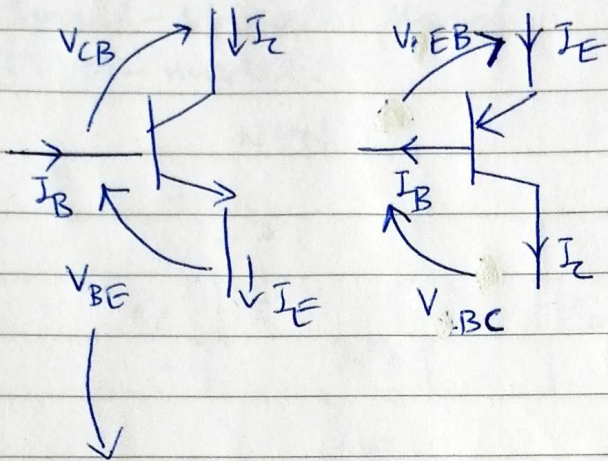 V_CB
I_C
I_B
V_BE
I_E
V_EB
I_E
I_B
I_C
V_BC